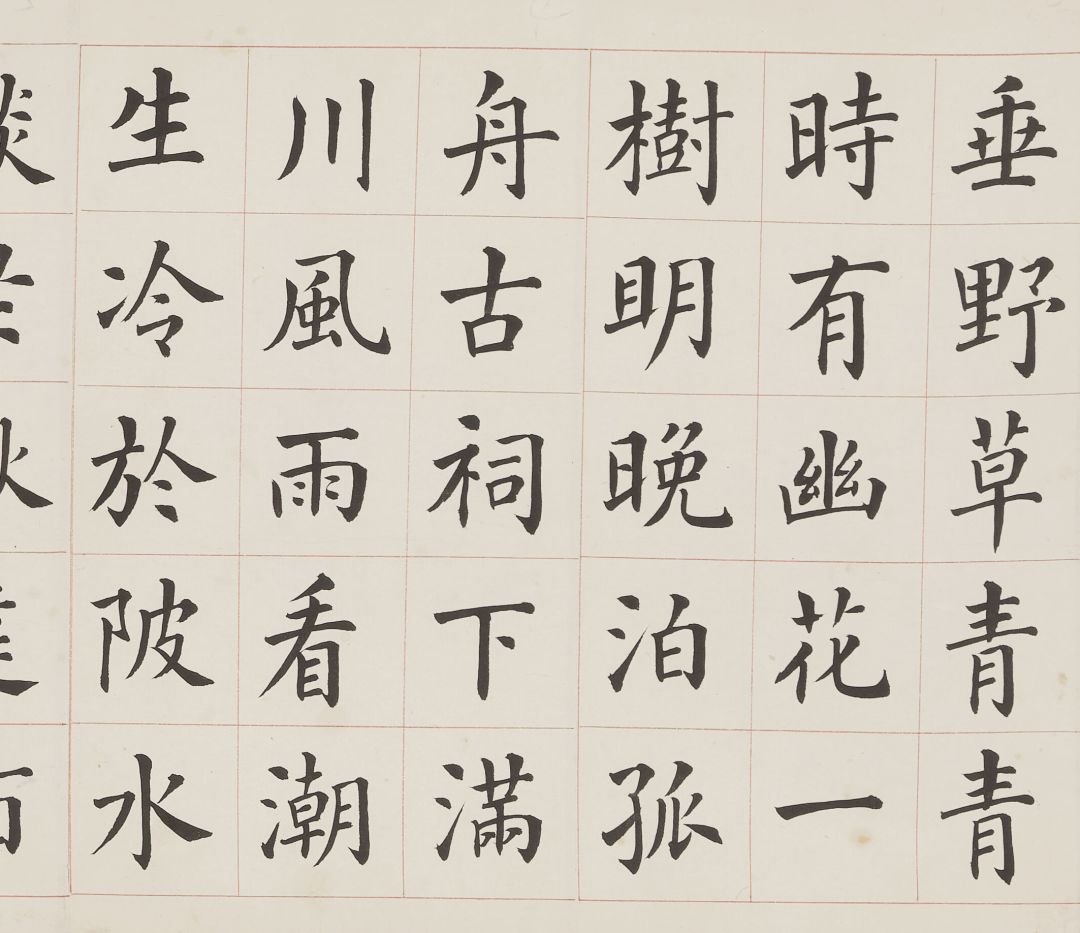 垂野草青青
時有幽花一
樹明晚泊孤
舟古祠下滿
川風雨看潮
生冷於陂水
淡於秋遠